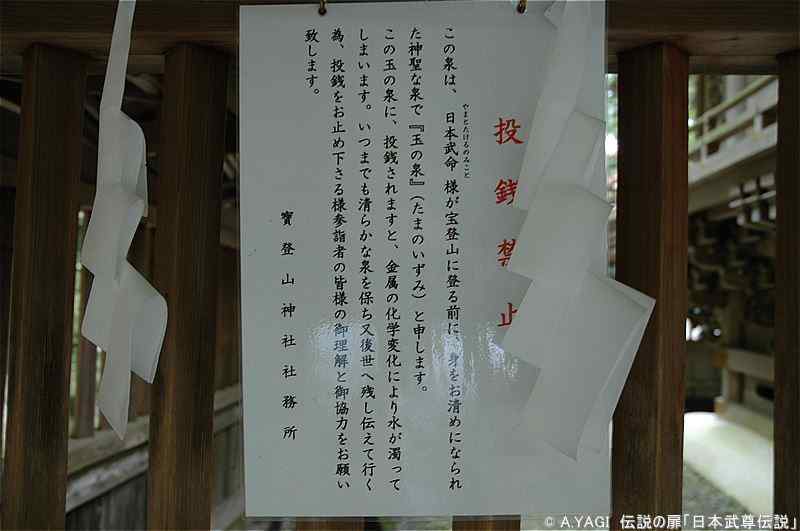 投銭禁止
この泉は、日本武命様が宝登山に登る前に、身をお清めになられ
やまとたけるのみこと
た神聖な泉で『玉の泉』（たまのいずみ）と申します。
この玉の泉に、投銭されますと、金属の化学変化により水が濁って
しまいます。いつまでも清らかな泉を保ち又後世へ残し伝えて行く
為、投銭をお止め下さる様参詣者の皆様の御理解と御協力をお願い
致します。
寶登山神社社務所
© A.YAGI 伝説の扉「日本武尊伝説」